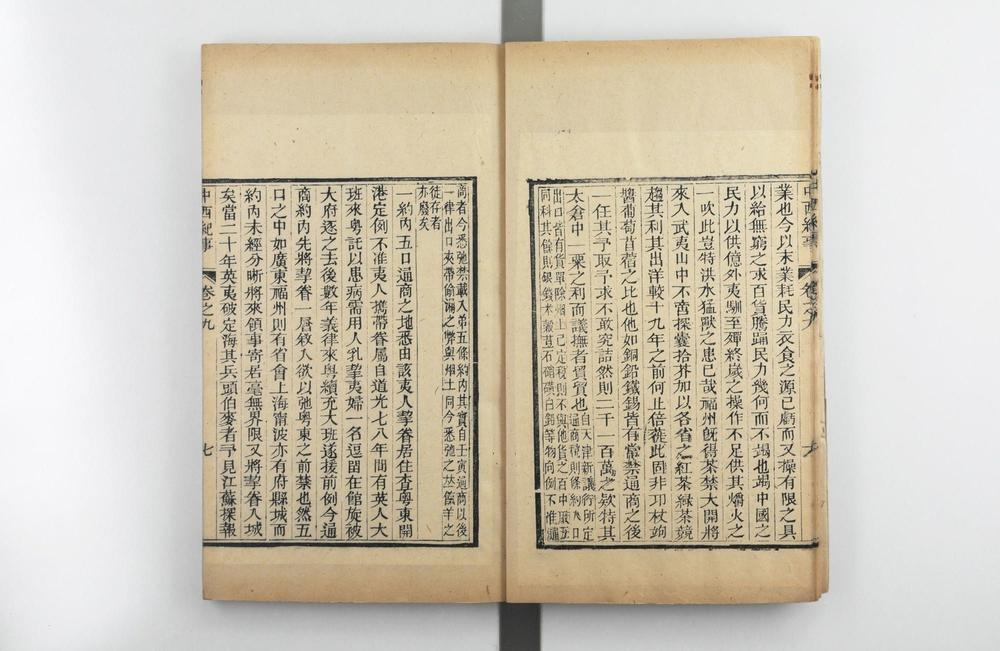 業也今以末業耗民力衣食之源已虧而又操有限之具
以給無窮之求百貨騰踊民力幾何而不竭也竭中國之
民力以供億外夷馴至殫終歲之操作不足供其爝火之
一吹此豈特洪水猛獸之患已哉福州旣得茶禁大開將
來入武夷山中不啻探囊拾芥加以各省之紅茶緑茶競
趨其利其出洋較十九年之前何止倍蓰此固非卭杖蒟
醬葡萄苜蓿之比也他如銅鉛鐵錫皆有常禁通商之後
一任其予取予求不敢究詰然則二千一百萬之欵特其
太倉中一粟之利而議撫者買貿也自天津新議行所定通商稅則條約內進口
出口皆有貨單除烟土已定稅則不與他貨之百中取五
同科其餘則銀錢米穀荳石硝磺白鉛等物向例不准通
商者今悉弛禁載入第五條約內其實自壬寅通商以後
一律出口夾帶偷漏之弊與烟土同今悉弛之並餼羊之
徒存者
亦廢矣
一約內五口通商之地悉由該夷人挈眷居住查粵東開
港定例不准夷人攜帶眷屬自道光七八年間有英人大
班來粵託以患病需用人乳挈夷婦一名逗留在館旋被
大府逐之去後數年義律來粵續充大班遂援前例今通
商約內先將挈眷一層敘入欲以弛粵東之前禁也然五
口之中如廣東福州則有省會上海甯波亦有府縣城而
約內未經分晰將來領事寄居毫無界限又將挈眷入城
矣當二十年英夷破定海其兵頭伯麥者予見江蘇探報
中西紀事
卷之九
七